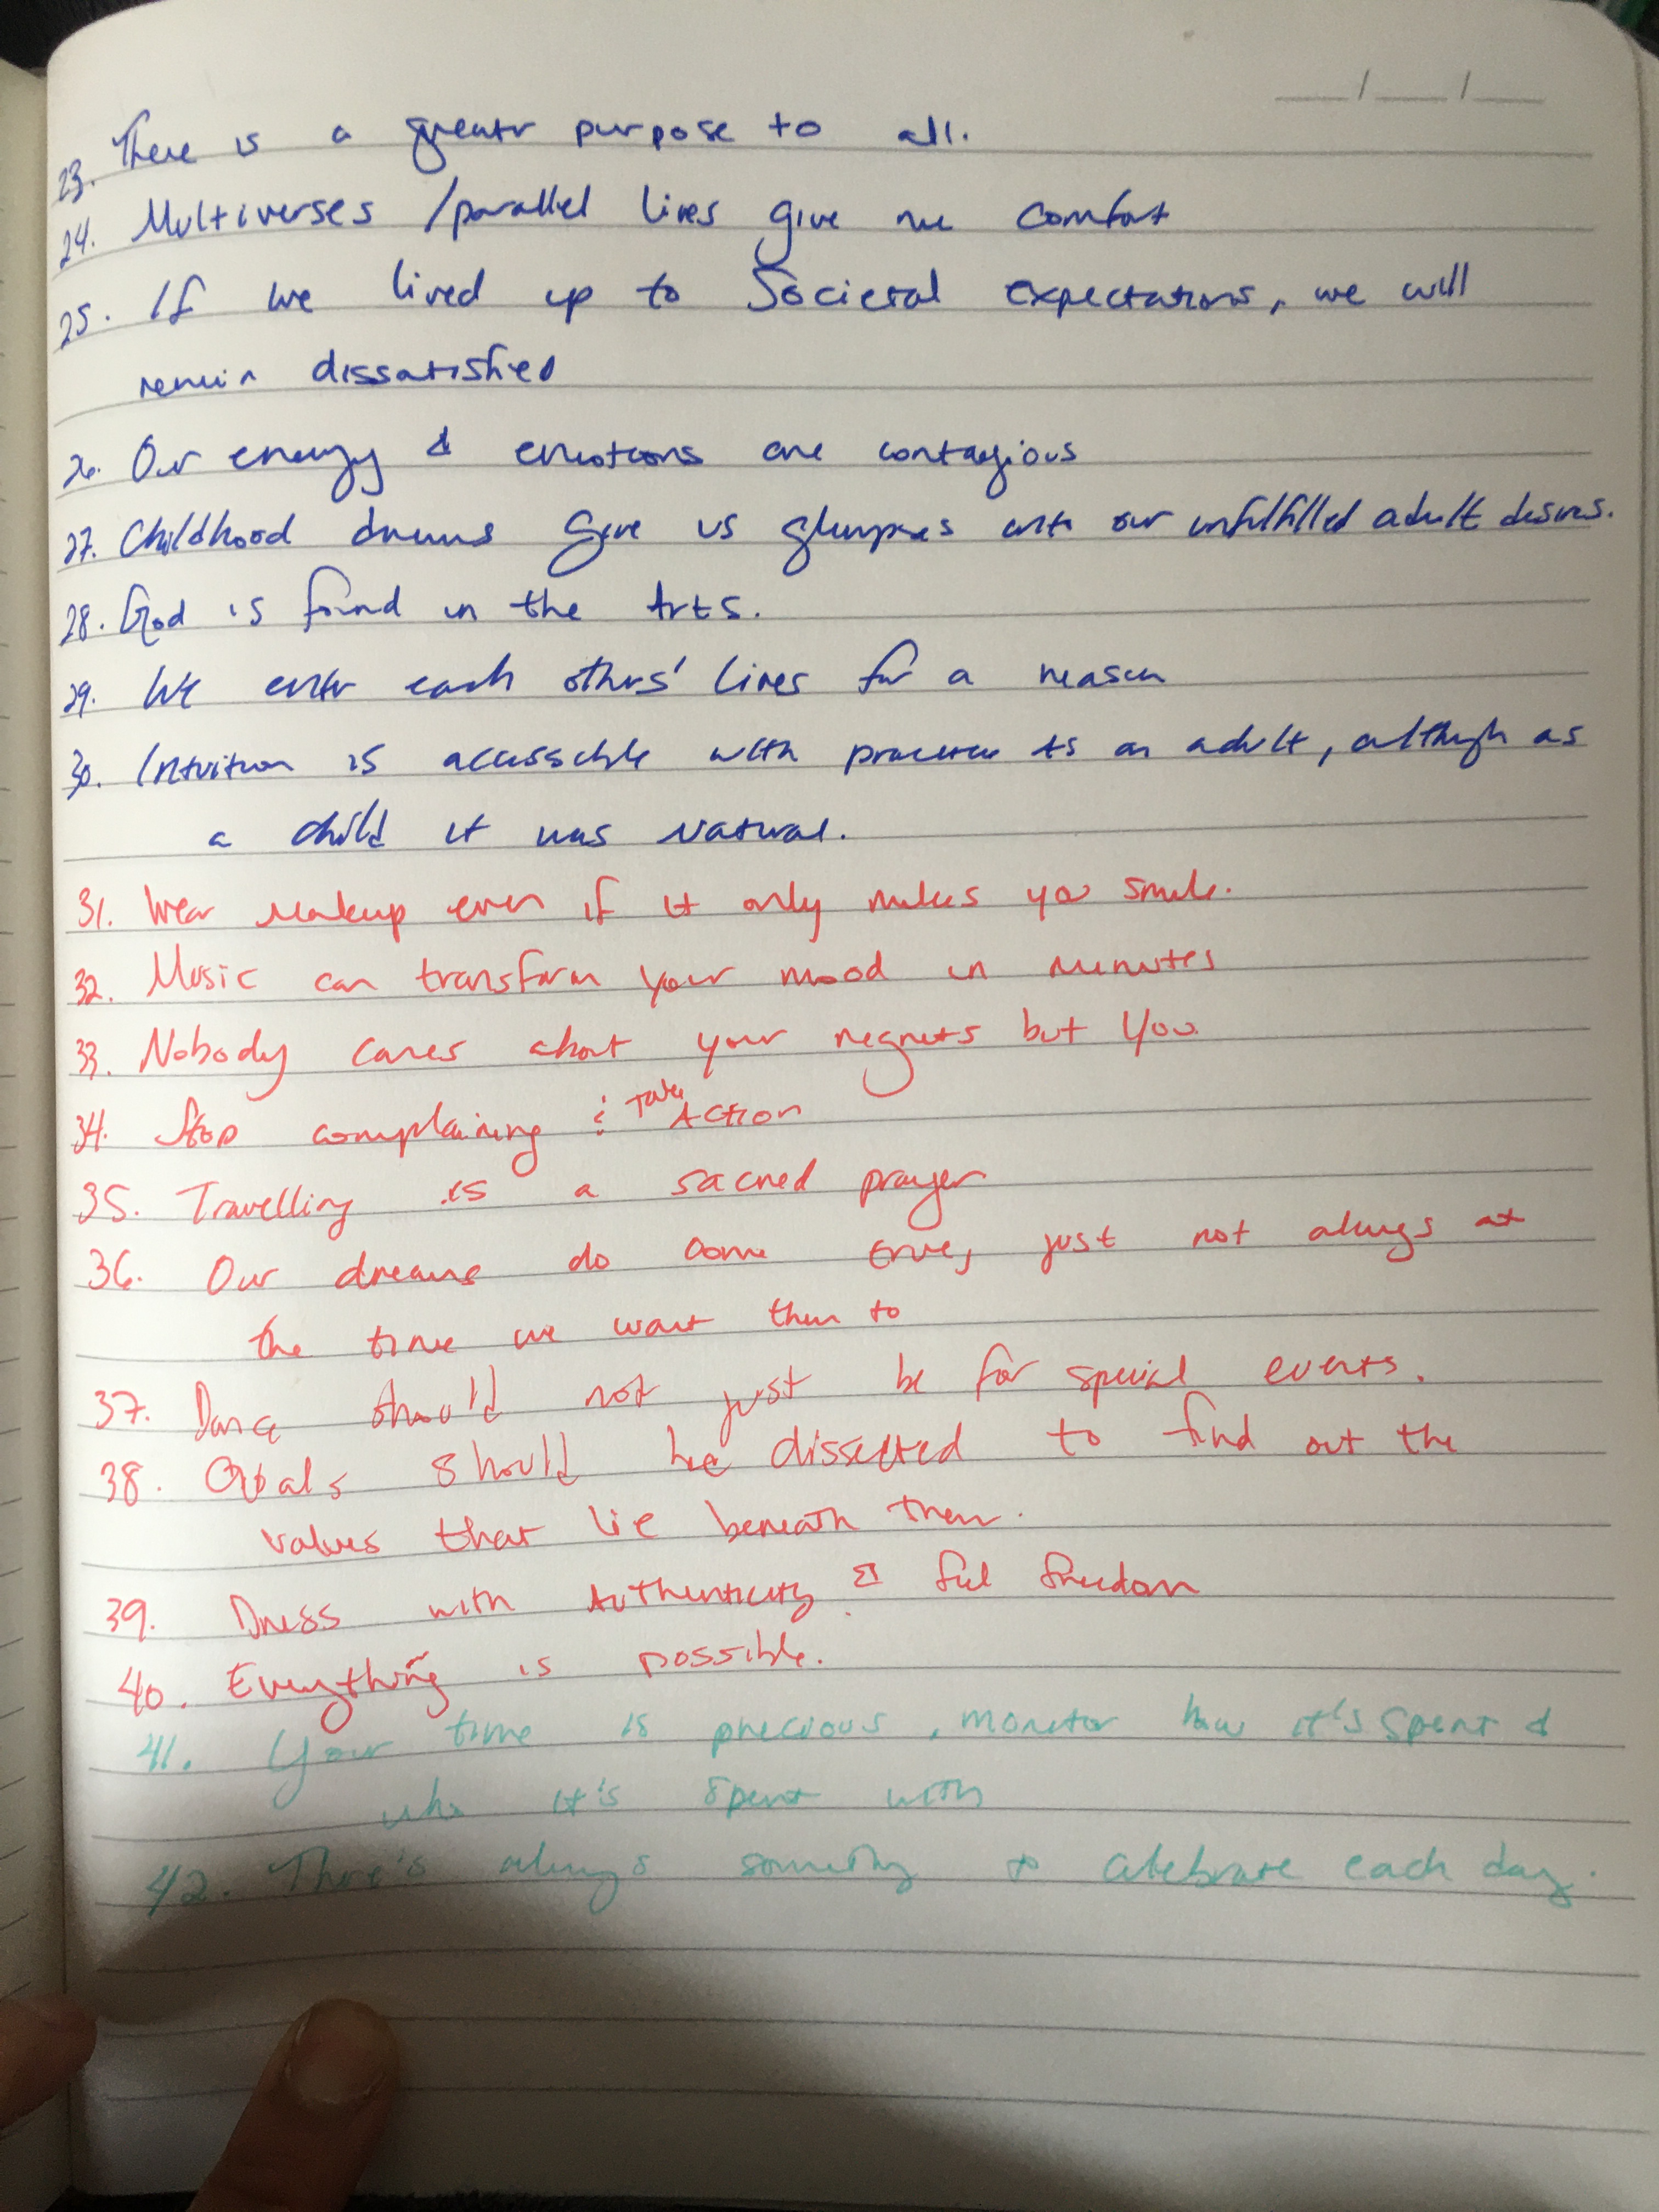 23. There is a greater purpose to all.
24. Multiverses /parallel lives give me comfort
25. If we lived up to Societal expectations, we will
remain dissatisfied
26. Our energy & emotions are contagious
27. Childhood dreams give us glimpses into our unfulfilled adult desires.
28. God is found in the Arts.
29. We enter each others' lives for a reason
30. Intuition is accessible with practice as an adult, although as
a child it was natural.
31. Wear makeup even if it only makes you smile.
32. Music can transform your mood in minutes
33. Nobody cares about your regrets but you.
34. Stop complaining & Take Action
35. Travelling is a sacred prayer
36. Our dreams do come true, just not always at
the time we want them to
37. Dance should not just be for special events.
38. Goals should be dissected to find out the
values that lie beneath them.
39. Dress with Authenticity & feel freedom
40. Everything is possible.
41. Your time is precious, monitor how it's spent &
who it's spent with
42. There's always something to celebrate each day.